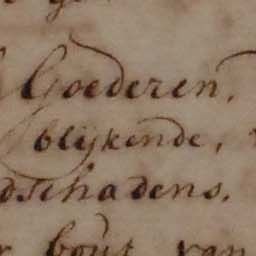 Goederen,
blijkende,
dschadens.
bout van